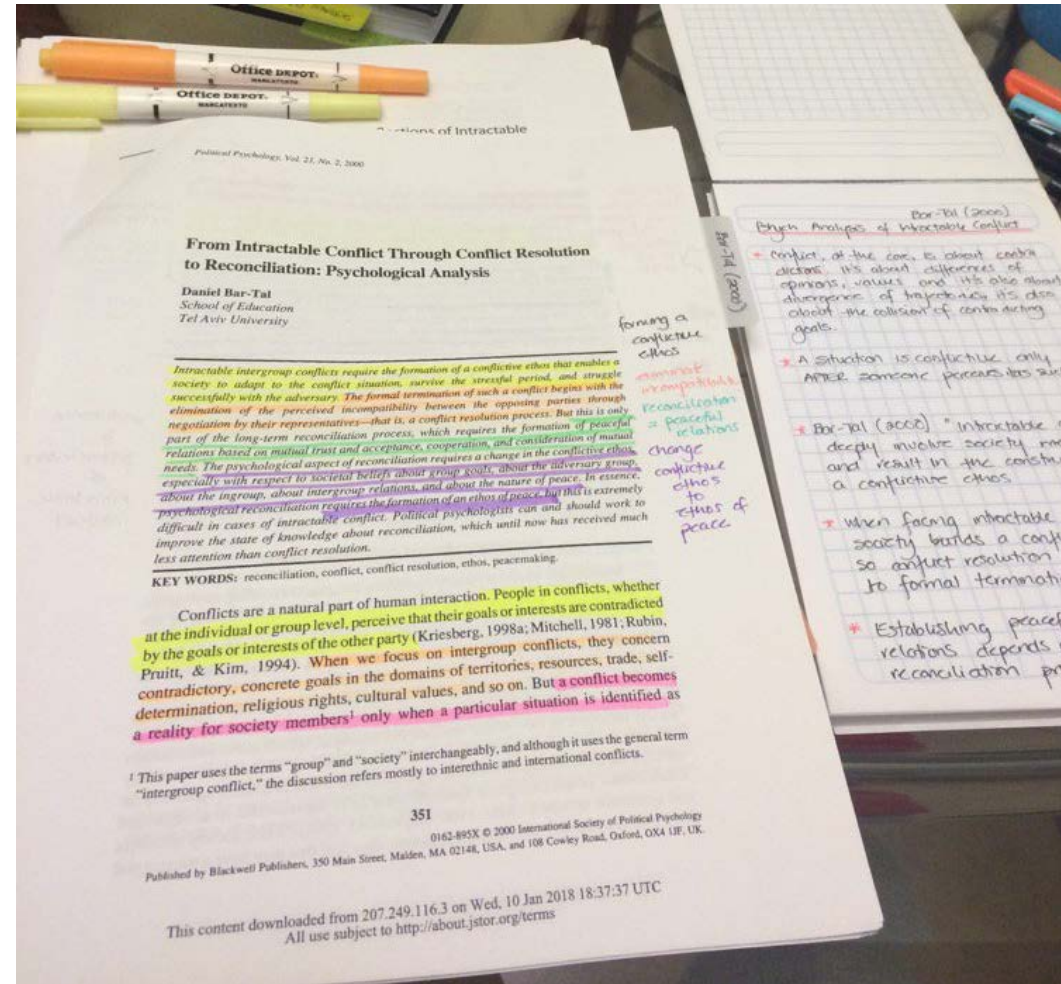 Office DEPOT
MARCATEXTO
Office DEPOT
MARCATEXTO
of Intractable
Political Psychology, Vol. 21, No. 2, 2000
From Intractable Conflict Through Conflict Resolution
to Reconciliation: Psychological Analysis
Daniel Bar-Tal
School of Education
Tel Aviv University
Intractable intergroup conflicts require the formation of a conflictive ethos that enables a
society to adapt to the conflict situation, survive the stressful period, and struggle
successfully with the adversary. The formal termination of such a conflict begins with the
elimination of the perceived incompatibility between the opposing parties through
negotiation by their representatives—that is, a conflict resolution process. But this is only
part of the long-term reconciliation process, which requires the formation of peaceful
relations based on mutual trust and acceptance, cooperation, and consideration of mutual
needs. The psychological aspect of reconciliation requires a change in the conflictive ethos,
especially with respect to societal beliefs about group goals, about the adversary group,
about the ingroup, about intergroup relations, and about the nature of peace. In essence,
psychological reconciliation requires the formation of an ethos of peace, but this is extremely
difficult in cases of intractable conflict. Political psychologists can and should work to
improve the state of knowledge about reconciliation, which until now has received much
less attention than conflict resolution.
KEY WORDS: reconciliation, conflict, conflict resolution, ethos, peacemaking.
Conflicts are a natural part of human interaction. People in conflicts, whether
at the individual or group level, perceive that their goals or interests are contradicted
by the goals or interests of the other party (Kriesberg, 1998a; Mitchell, 1981; Rubin,
Pruitt, & Kim, 1994). When we focus on intergroup conflicts, they concern
contradictory, concrete goals in the domains of territories, resources, trade, self-
determination, religious rights, cultural values, and so on. But a conflict becomes
a reality for society members¹ only when a particular situation is identified as
¹ This paper uses the terms “group” and “society” interchangeably, and although it uses the general term
“intergroup conflict,” the discussion refers mostly to interethnic and international conflicts.
351
0162-895X © 2000 International Society of Political Psychology
Published by Blackwell Publishers, 350 Main Street, Malden, MA 02148, USA, and 108 Cowley Road, Oxford, OX4 1JF, UK.
This content downloaded from 207.249.116.3 on Wed, 10 Jan 2018 18:37:37 UTC
All use subject to http://about.jstor.org/terms
forming a
conflictive
ethos
reconciliation
= peaceful
relations
change
conflictive
ethos
to
ethos of
peace
Bar-Tal (2000)
Bar-Tal (2000)
Psych Analysis of Intractable Conflict
* conflict, at the core, is about contra
dictions. It's about differences of
opinions, values and it's also about
divergence of trajectories, it's also
about the collision of contradicting
goals.
* A situation is conflictive only
AFTER someone perceives it as such
* Bar-Tal (2000) "Intractable
deeply involve society
and result in the
a conflictive ethos.
* When facing intractable
society builds a
so conflict resolution
to formal
* Establishing
relations depends
reconciliation